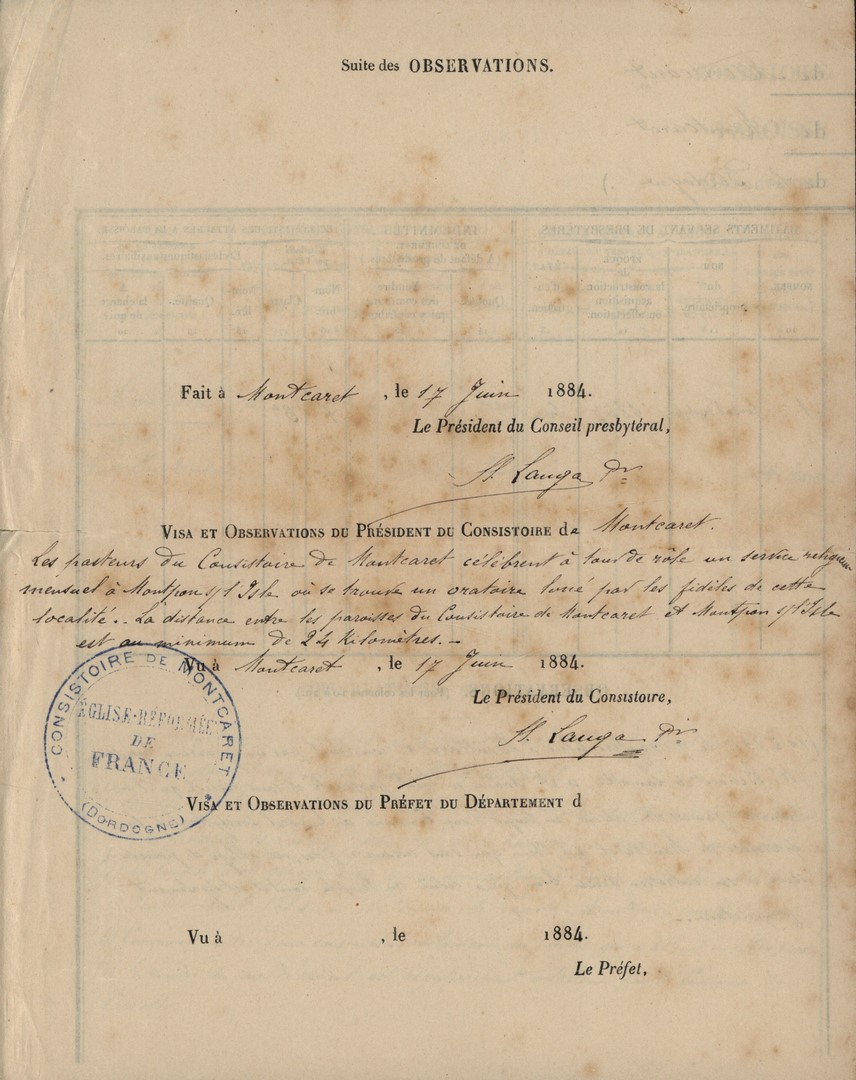 Suite des OBSERVATIONS.
Fait à Montcaret, le 17 Juin 1884.
Le Président du Conseil presbytéral,
Lauga
VISA ET OBSERVATIONS DU PRÉSIDENT DU CONSISTOIRE de Montcaret.
Les pasteurs du Consistoire de Montcaret célèbrent à tour de rôle un service religieux
mensuel à Montpon s/l'Isle où se trouve un oratoire loué par les fidèles de cette
localité. La distance entre les paroisses du Consistoire de Montcaret et Montpon s/l'Isle
est au minimum de 24 Kilomètres. —
Vu à Montcaret, le 17 Juin 1884.
Le Président du Consistoire,
Lauga
CONSISTOIRE DE MONTCARET
ÉGLISE-RÉFORMÉE
DE
FRANCE
(DORDOGNE)
VISA ET OBSERVATIONS DU PRÉFET DU DÉPARTEMENT d
Vu à , le 1884.
Le Préfet,